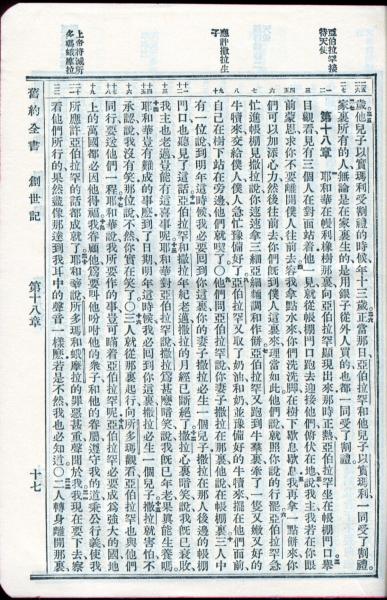 亞伯拉罕接
待天使
應許撒拉生
子
上帝將滅所
多瑪蛾摩拉
歲他兒子以實瑪利受割禮的時候年十三歲正當那日亞伯拉罕和他兒子以實瑪利一同受了割禮
家裏所有的人無論是在家裏生的是用銀子從外人買的也都一同受了割禮
第十八章 耶和華在幔利橡樹那裏向亞伯拉罕顯現出來那時正熱亞伯拉罕坐在帳棚門口舉
目觀看見有三個人在對面站着他一見就從帳棚門口跑去迎接他們俯伏在地說我主我若在你眼
前蒙恩求你不要離開僕人往前去容我拿點水來你們洗洗腳在樹下歇息歇息我再拿一點餅來你
們可以加添心力然後往前去你們旣到僕人這裏來理當如此他們說就照你說的行罷亞伯拉罕急
忙進帳棚見撒拉說你速速拿三細亞細麵調和作餅亞伯拉罕又跑到牛羣裏牽了一隻又嫩又好的
牛犢來交給僕人僕人急忙豫備好了亞伯拉罕又取了奶油和奶並豫備好的牛犢來擺在他們面前
自己在樹下站在旁邊他們就喫了〇他們問亞伯拉罕說你妻子撒拉在那裏他說在帳棚裏三人中
有一位說到明年這時候我必要回到你這裏你的妻子撒拉必生一個兒子撒拉在那人後邊的帳棚
門口也聽見了這話亞伯拉罕和撒拉年紀老邁撒拉的月經已斷絕了撒拉心裏暗笑說我旣已衰敗
我主也老邁豈能有這喜事呢耶和華對亞伯拉罕說撒拉爲甚麼暗笑說我旣已年老果眞能生養嗎
耶和華豈有難成的事麼到了日期明年這時候我必回到你這裏撒拉必生一個兒子撒拉就害怕不
承認說我沒有笑那位說不然你實在笑了〇三人就從那裏起行向所多瑪觀看亞伯拉罕也與他們
同行要送他們一程耶和華說我所要作的事豈可瞞着亞伯拉罕呢亞伯拉罕必要成爲強大的國地
上的萬國都必因他得福我眷顧他爲要叫他吩咐他的衆子和他的眷屬遵守我的道秉公行義使我
所應許亞伯拉罕的話都成就了耶和華說所多瑪和蛾摩拉的罪惡甚重聲聞於我我現在要下去察
看他們所行的果然盡像那達到我耳中的聲音一樣麼若是不然我也必知道〇二人轉身離開那裏
舊約全書 創世記 第十八章 十七